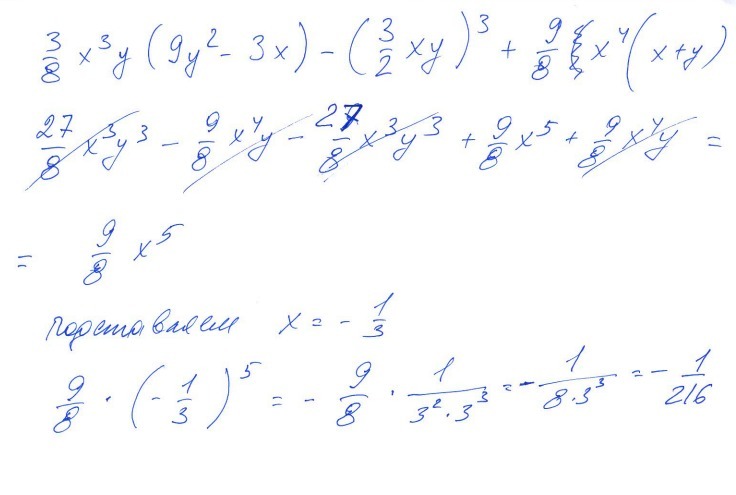 3/8 x³y (9y² - 3x) - (3/2 xy)³ + 9/8 x⁴ (x+y)
27/8 x³y³ - 9/8 x⁴y - 27/8 x³y³ + 9/8 x⁵ + 9/8 x⁴y =
= 9/8 x⁵
подставляем x = - 1/3
9/8 · (- 1/3)⁵ = - 9/8 · 1/(3² · 3³) = - 1/(8 · 3³) = - 1/216